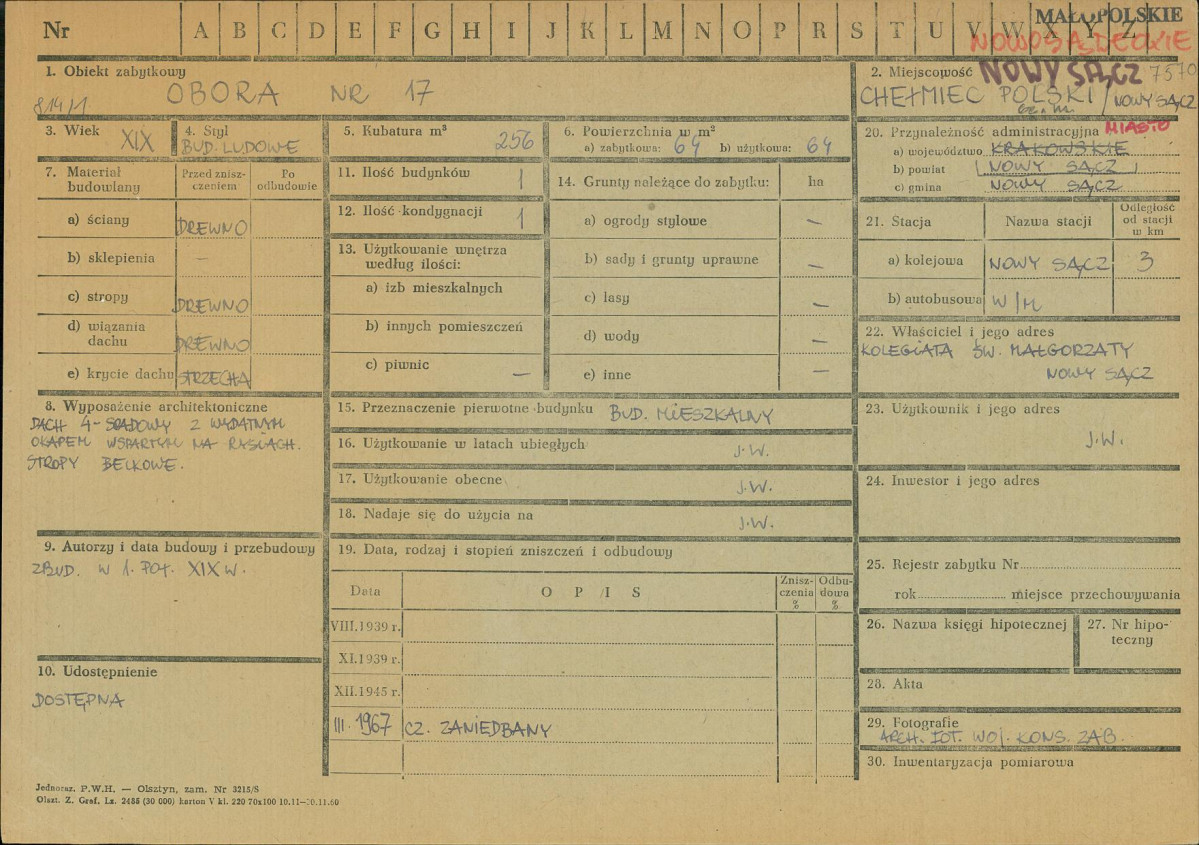 Nr A B C D E F G H I J K L M N O P R S T U V W X Y Z
MAŁOPOLSKIE
NOWOSĄDECKIE
1. Obiekt zabytkowy
814/1
OBORA NR 17
2. Miejscowość NOWY SĄCZ 7570
CHEŁMIEC POLSKI / NOWY SĄCZ
3. Wiek XIX
4. Styl
BUD. LUDOWE
5. Kubatura m³
256
6. Powierzchnia w m²
a) zabytkowa: 64 b) użytkowa: 64
20. Przynależność administracyjna MIASTO
a) województwo KRAKOWSKIE
b) powiat NOWY SĄCZ
c) gmina NOWY SĄCZ
7. Materiał budowlany
Przed zniszczeniem
Po odbudowie
a) ściany DREWNO
b) sklepienia —
c) stropy DREWNO
d) wiązania dachu DREWNO
e) krycie dachu STRZECHA
11. Ilość budynków 1
12. Ilość kondygnacji 1
13. Użytkowanie wnętrza
według ilości:
a) izb mieszkalnych
b) innych pomieszczeń
c) piwnic —
14. Grunty należące do zabytku: ha
a) ogrody stylowe —
b) sady i grunty uprawne —
c) lasy —
d) wody —
e) inne —
21. Stacja Nazwa stacji
Odległość
od stacji
w km
a) kolejowa NOWY SĄCZ 3
b) autobusowa W/M
22. Właściciel i jego adres
KOLEGIATA ŚW. MAŁGORZATY
NOWY SĄCZ
8. Wyposażenie architektoniczne
DACH 4-SPADOWY Z WYDATNYM
OKAPEM WSPARTYM NA RYSIACH.
STROPY BELKOWE.
15. Przeznaczenie pierwotne budynku BUD. MIESZKALNY
16. Użytkowanie w latach ubiegłych J.W.
17. Użytkowanie obecne J.W.
18. Nadaje się do użycia na J.W.
23. Użytkownik i jego adres
J.W.
24. Inwestor i jego adres
9. Autorzy i data budowy i przebudowy
ZBUD. W 1. POŁ. XIX W.
19. Data, rodzaj i stopień zniszczeń i odbudowy
Data O P I S
Znisz-
czenia
%
Odbu-
dowa
%
VIII.1939 r.
XI.1939 r.
XII.1945 r.
III. 1967 CZ. ZANIEDBANY
25. Rejestr zabytku Nr
rok miejsce przechowywania
26. Nazwa księgi hipotecznej
27. Nr hipo-
teczny
10. Udostępnienie
DOSTĘPNA
28. Akta
29. Fotografie
ARCH. FOT. WOJ. KONS. ZAB.
30. Inwentaryzacja pomiarowa
Jednoraz. P.W.H. — Olsztyn, zam. Nr 3215/S
Olszt. Z. Graf. Lz. 2485 (30 000) karton V kl. 220 70x100 10.11—20.11.60